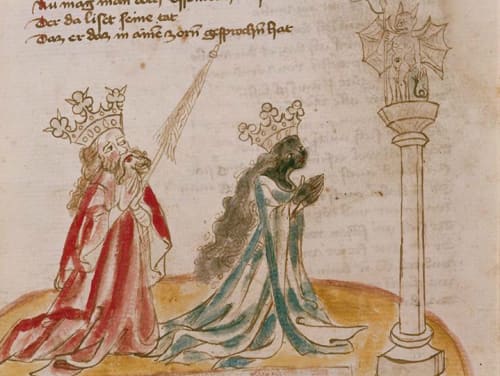 Nu mag man aber
Der da liset seine tat
Daz er daz in aime zorn gesprochn hat